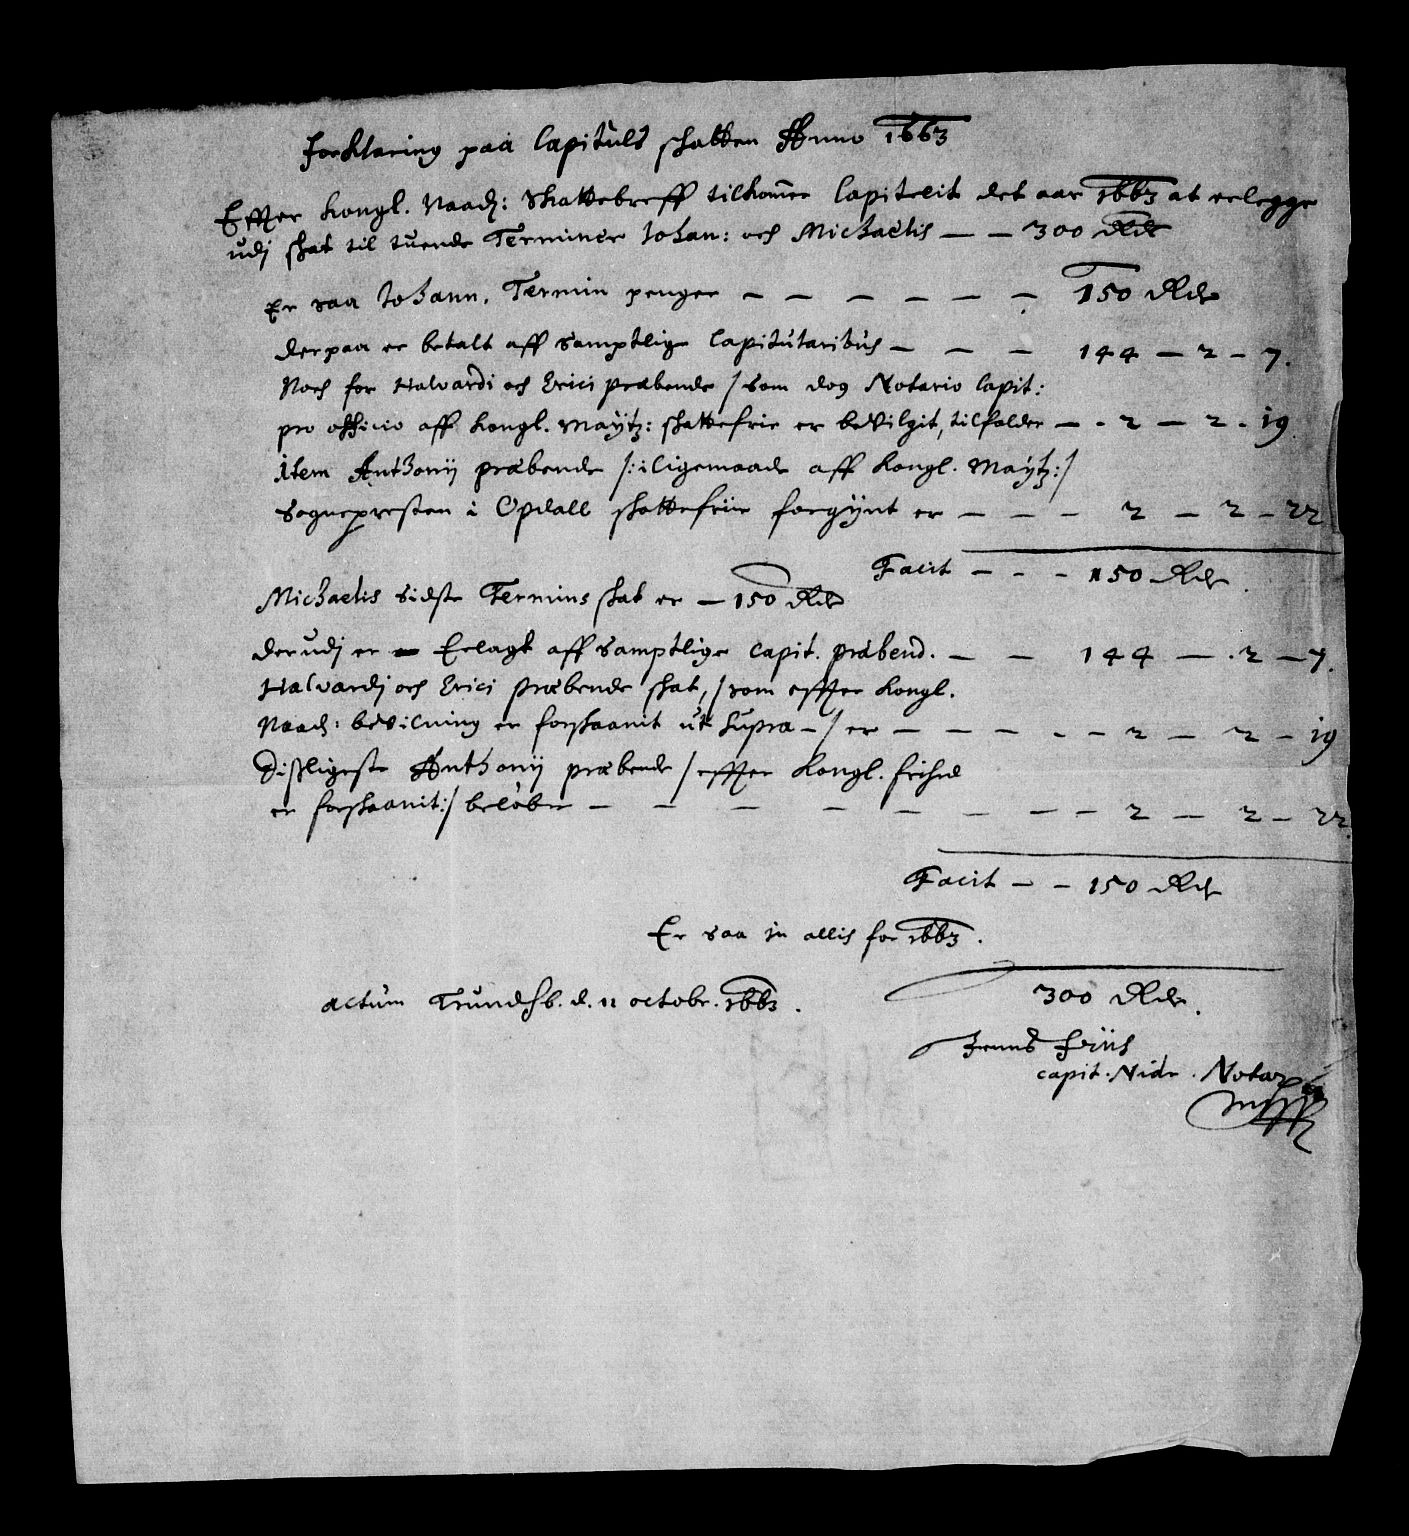 Forklaring paa Capituls skatten Anno 1663
Effter Kongl. Naad: Skattebreff tilkom̄er Capitelit det aar 1663 at erlegge
udj skat til tuende Terminer Johan: och Michaelis — — 300 Rdr
Er saa Johann. Termin penger — — — — — — 150 Rdr
derpaa er betalt aff samptlige Capitularibus — — — 144 — 2 — 7.
Noch for Halvardi och Erici præbende / som dog Notario Capit:
pro officio aff Kongl. Maÿtz: skattefrie er bevilgit, tilfalder — - 2 — 2 - 19.
Item Anthonij præbende /: iligemaade aff Kongl. Maÿtz: /
Sognepresten i Opdall skattefriie forgÿnt er — — — 2 — 2 — 22
Facit — - - 150 Rdr
Michaelis sidste Termins skat er — 150 Rdr
derudj er — Erlagt aff samptlige Capit. præbend. — — 144 — 2 — 7.
Halvardj och Erici præbende skat, / som effter Kongl.
Naad: bevilning er forskaanit ut supra — / er — — — - - 2 — 2 — 19
Dißligeste Anthonij præbende / effter Kongl. frihed
er forskaanit: / beløber — — — — — — — — 2 — 2 — 22.
Facit — — 150 Rdr
Er saa in allis for 1663.
300 Rdr.
Actum Trundhb. d. 11 octobr. 1663.
Jenns Friis
capit. Nidr. Notar